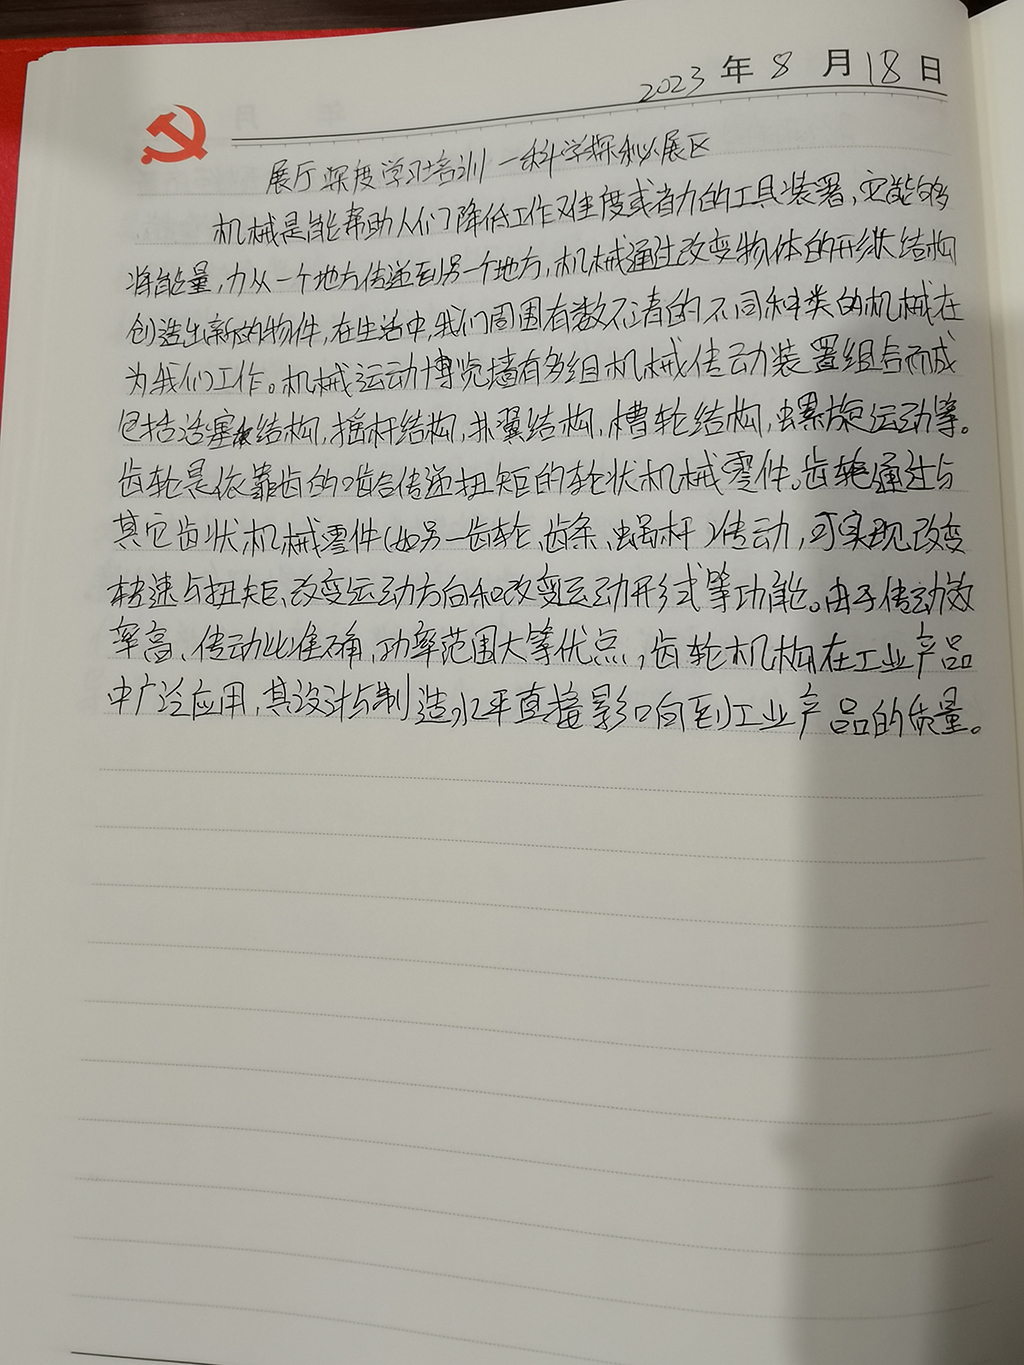 2023年8月18日
展厅深度学习培训一科学探秘展区
机械是能帮助人们降低工作难度或省力的工具装置,它能够
将能量,力从一个地方传递到另一个地方,机械通过改变物体的形状结构
创造出新的物件,在生活中,我们周围有数不清的不同种类的机械在
为我们工作。机械运动博览墙有多组机械传动装置组合而成
包括活塞结构,摇杆结构,扑翼结构,槽轮结构,螺旋运动等。
齿轮是依靠齿的啮合传递扭矩的轮状机械零件。齿轮通过与
其它齿状机械零件(如另一齿轮、齿条、蜗杆)传动,可实现改变
转速与扭矩、改变运动方向和改变运动形式等功能。由于传动效
率高、传动比准确,功率范围大等优点,齿轮机构在工业产品
中广泛应用,其设计与制造水平直接影响到工业产品的质量。